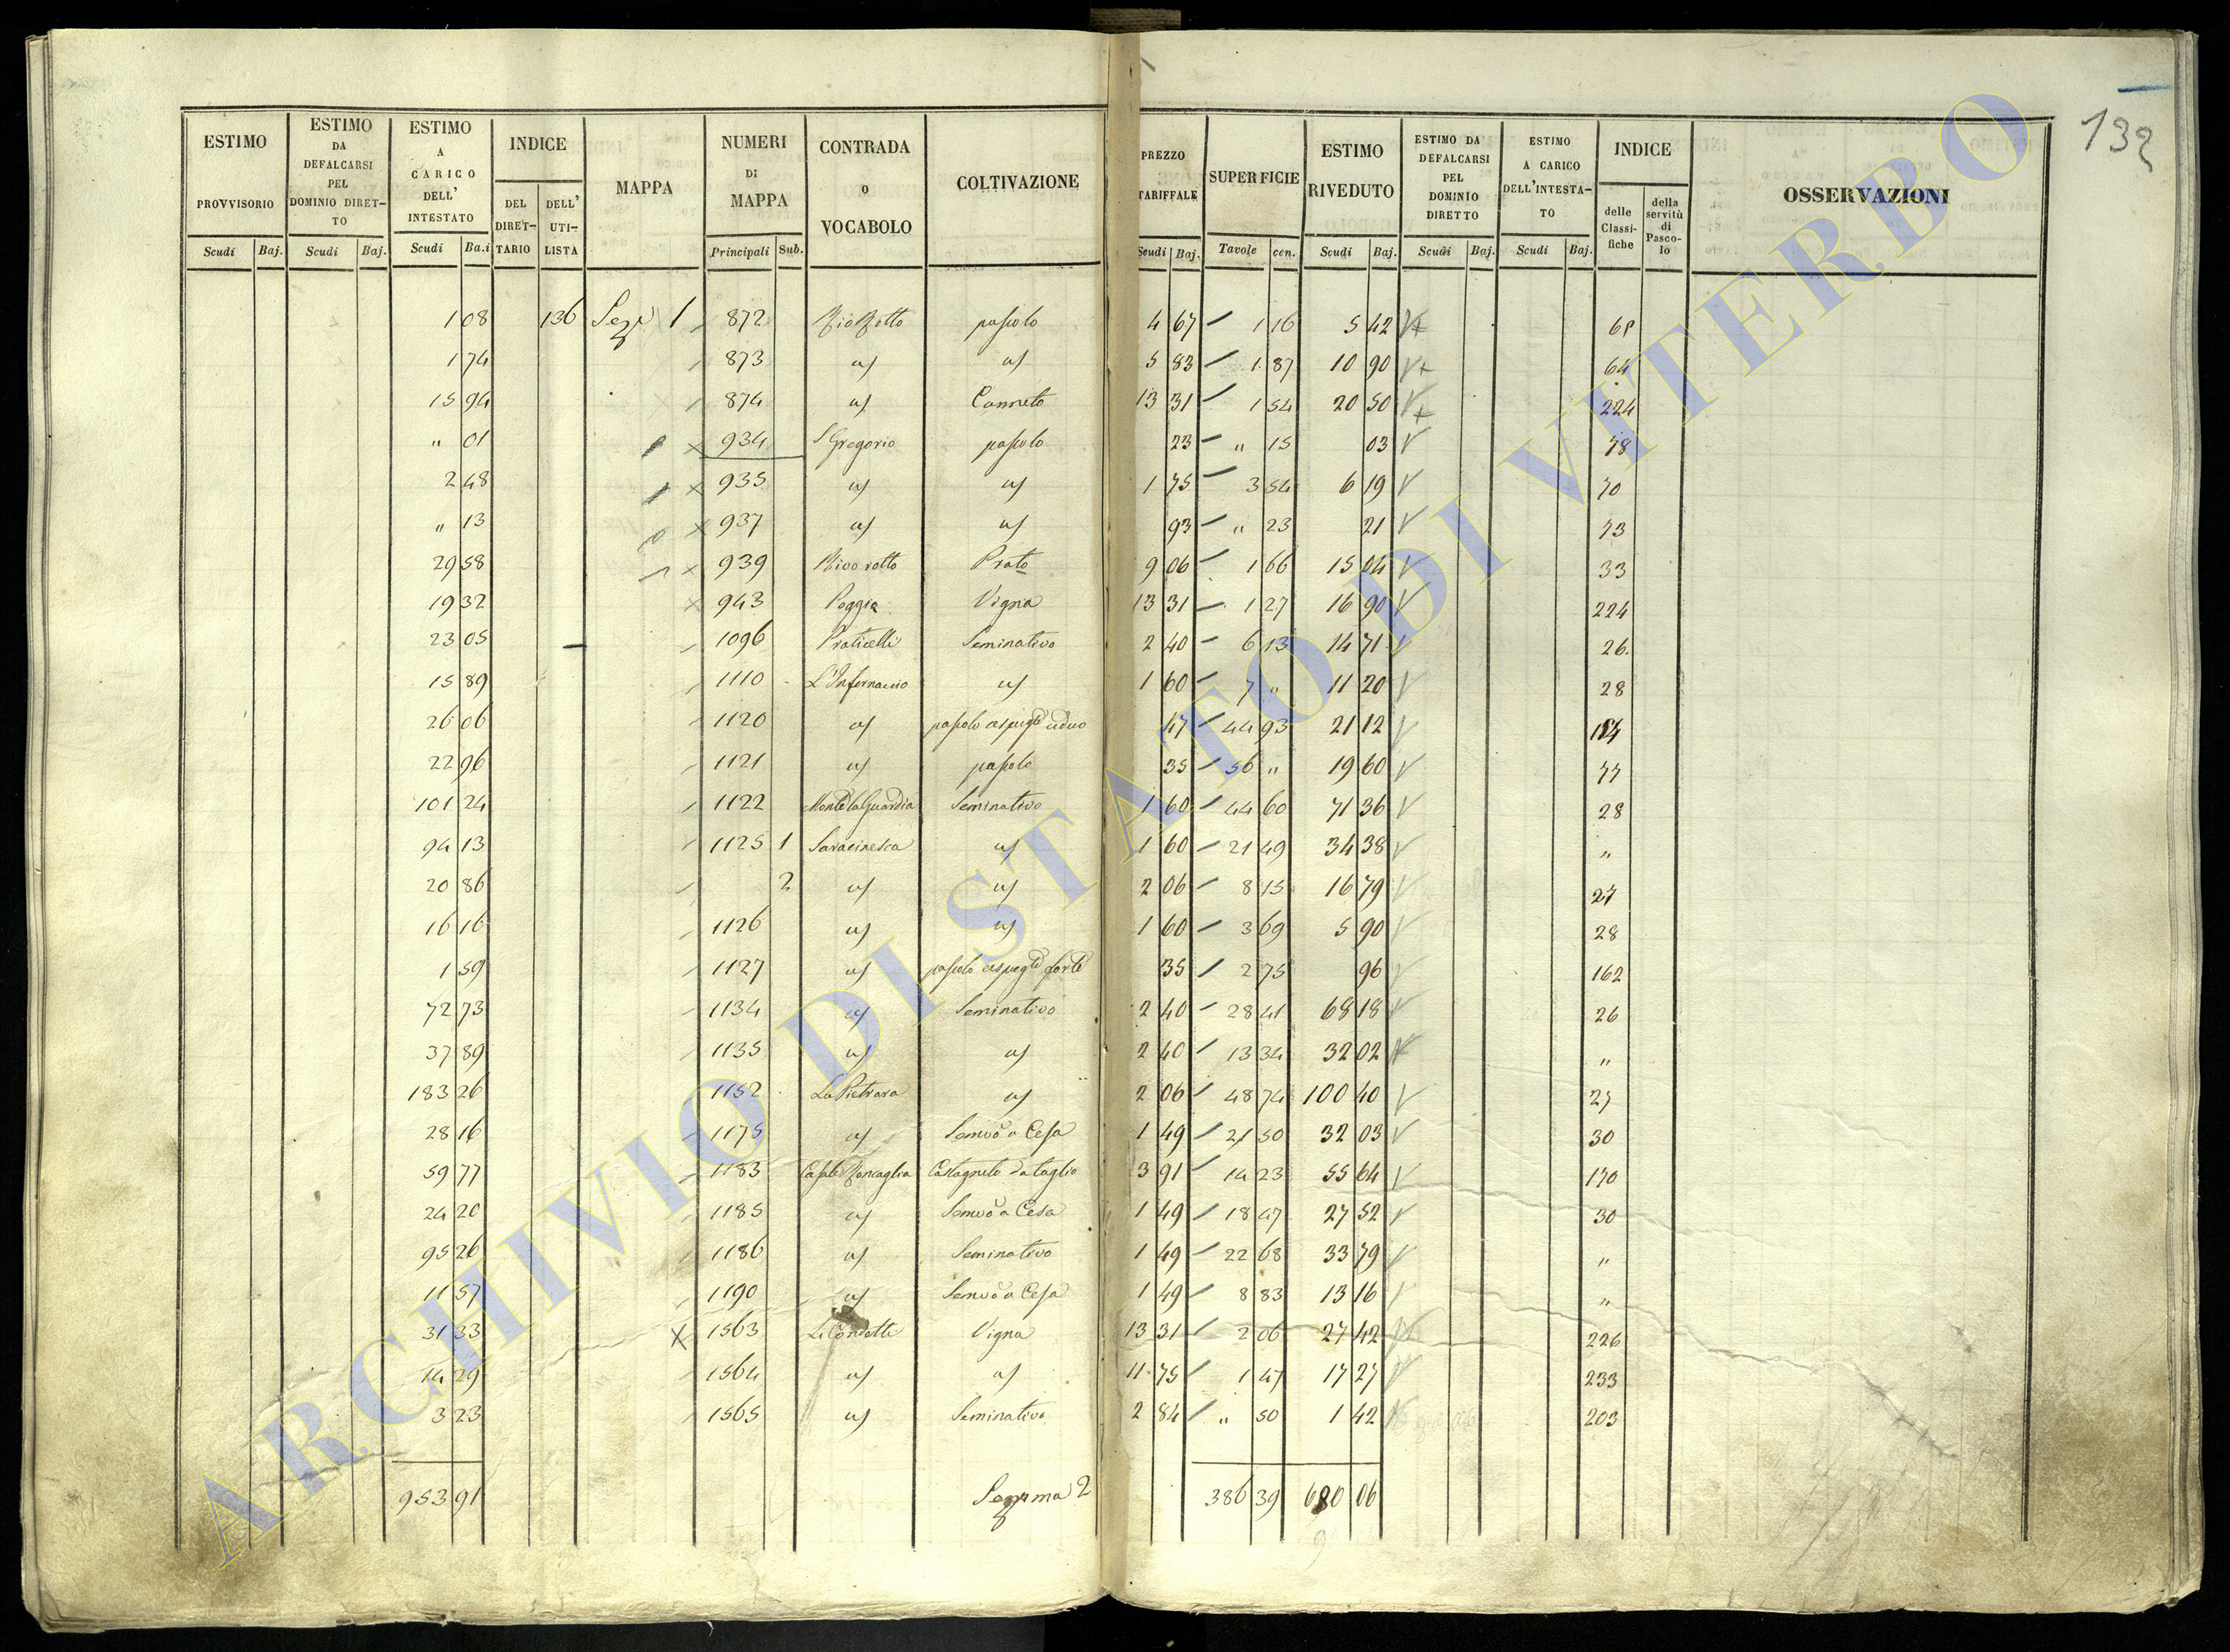 132
ESTIMO PROVVISORIO | ESTIMO DA DEFALCARSI PEL DOMINIO DIRET-TO | ESTIMO A CARICO DELL' INTESTATO | INDICE | MAPPA | NUMERI DI MAPPA | CONTRADA o VOCABOLO | COLTIVAZIONE | PREZZO TARIFFALE | SUPERFICIE | ESTIMO RIVEDUTO | ESTIMO DA DEFALCARSI PEL DOMINIO DIRETTO | ESTIMO A CARICO DELL'INTESTA-TO | INDICE | OSSERVAZIONI
DEL DIRET-TARIO | DELL' UTI-LISTA | delle Classi-fiche | della servitù di Pasco-lo
Scudi | Baj. | Scudi | Baj. | Scudi | Ba.i | Principali | Sub. | Scudi | Baj. | Tavole | cen. | Scudi | Baj. | Scudi | Baj. | Scudi | Baj.
1 08 136 1 872 Rio Rotto pascolo 4 67 1 16 5 42
1 74 873 a/ a/ 5 83 1 87 10 90 64
15 94 874 a/ Canneto 13 31 1 54 20 50 224
" 01 934 S Gregorio pascolo 23 " 15 03 78
2 48 935 a/ a/ 1 75 3 54 6 19 70
" 13 937 a/ a/ 93 " 23 21 73
29 58 939 Rivo rotto Prato 9 06 1 66 15 04 33
19 32 943 Poggio Vigna 13 31 1 27 16 90 224
23 05 1096 Praticelli Seminativo 2 40 6 13 14 71 26.
15 89 1110 L'Infernaccio a/ 1 60 7 " 11 20 28
26 06 1120 a/ pascolo cespugto 47 44 93 21 12
22 96 1121 a/ pascolo 35 56 " 19 60 77
101 24 1122 Monte la Guardia Seminativo 1 60 44 60 71 36 28
94 13 1125 1 Saracinesca a/ 1 60 21 49 34 38 "
20 86 2 a/ a/ 2 06 8 15 16 79 27
16 16 1126 a/ a/ 1 60 3 69 5 90 28
1 59 1127 a/ pascolo cespugto forte 35 2 75 96 162
72 73 1134 a/ Seminativo 2 40 28 41 68 18 26
37 89 1135 a/ a/ 2 40 13 34 32 02 "
183 26 1152 La Pietrara a/ 2 06 48 74 100 40 27
28 16 1175 a/ Semvo a Cesa 1 49 21 50 32 03 30
59 77 1183 Casale Roncaglia Castagneto da taglio 3 91 14 23 55 64 170
24 20 1185 a/ Semvo a Cesa 1 49 18 47 27 52 30
95 26 1186 a/ Seminativo 1 49 22 68 33 79 "
11 57 1190 a/ Semvo a Cesa 1 49 8 83 13 16 "
31 33 X 1563 Vigna 13 31 2 06 27 42 226
14 29 1564 a/ a/ 11 75 1 47 17 27 233
3 23 1565 a/ Seminativo 2 84 " 50 1 42 203
953 91 2 386 39 680 06
ARCHIVIO DI STATO DI VITERBO